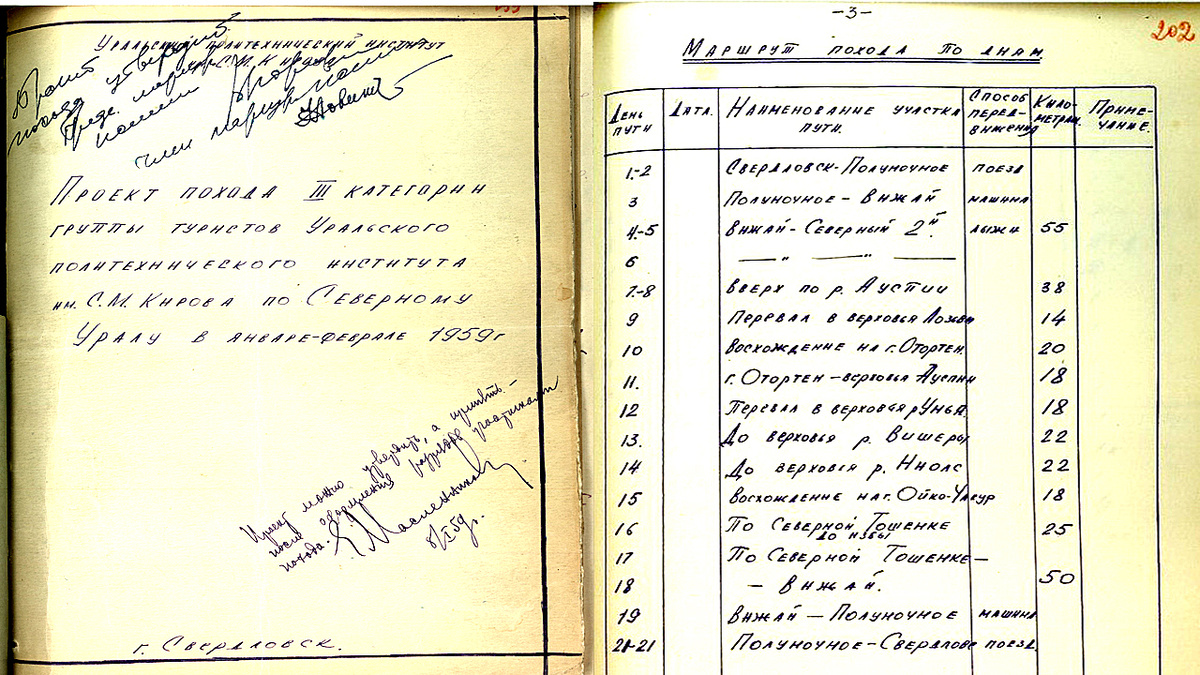 Уральский политехнический институт
им. С.М. Кирова
Проект похода III категории
группы туристов Уральского
политехнического института
им. С.М. Кирова по Северному
Уралу в январе-феврале 1959г
Проект можно утвердить, а
после оформления
похода.
г. Свердловск.
-3-
202
Маршрут похода по дням
День пути Дата. Наименование участка пути. Способ передвижения Километраж Примечание.
1-2 Свердловск-Полуночное поезд
3 Полуночное - Вижай машина
4-5 Вижай-Северный 2й. лыжи 55
6 — " — — " —
7-8 Вверх по р. Ауспии 38
9 Перевал в верховья Лозьвы 14
10 Восхождение на г. Отортен. 20
11. г. Отортен - верховья Ауспии 18
12 Перевал в верховья р Унья. 18
13. До верховья р. Вишеры 22
14 До верховья р. Ниолс 22
15 Восхождение на г. Ойко-Чакур 18
16 По Северной Тошенке до избы 25
17 По Северной Тошемке -
18 - Вижай. 50
19 Вижай - Полуночное машина
21-21 Полуночное-Свердловс поезд.